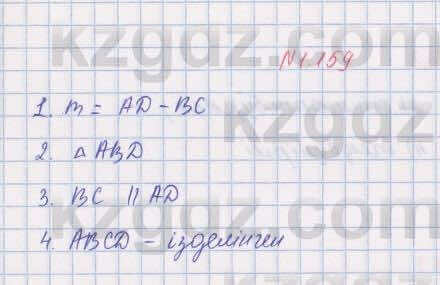 kzgdz.com
N1.159
1. m = AD - BC
kzgdz
2. △ABD
3. BC || AD
kzgdz.com
4. ABCD - ізделінген
kzgdz